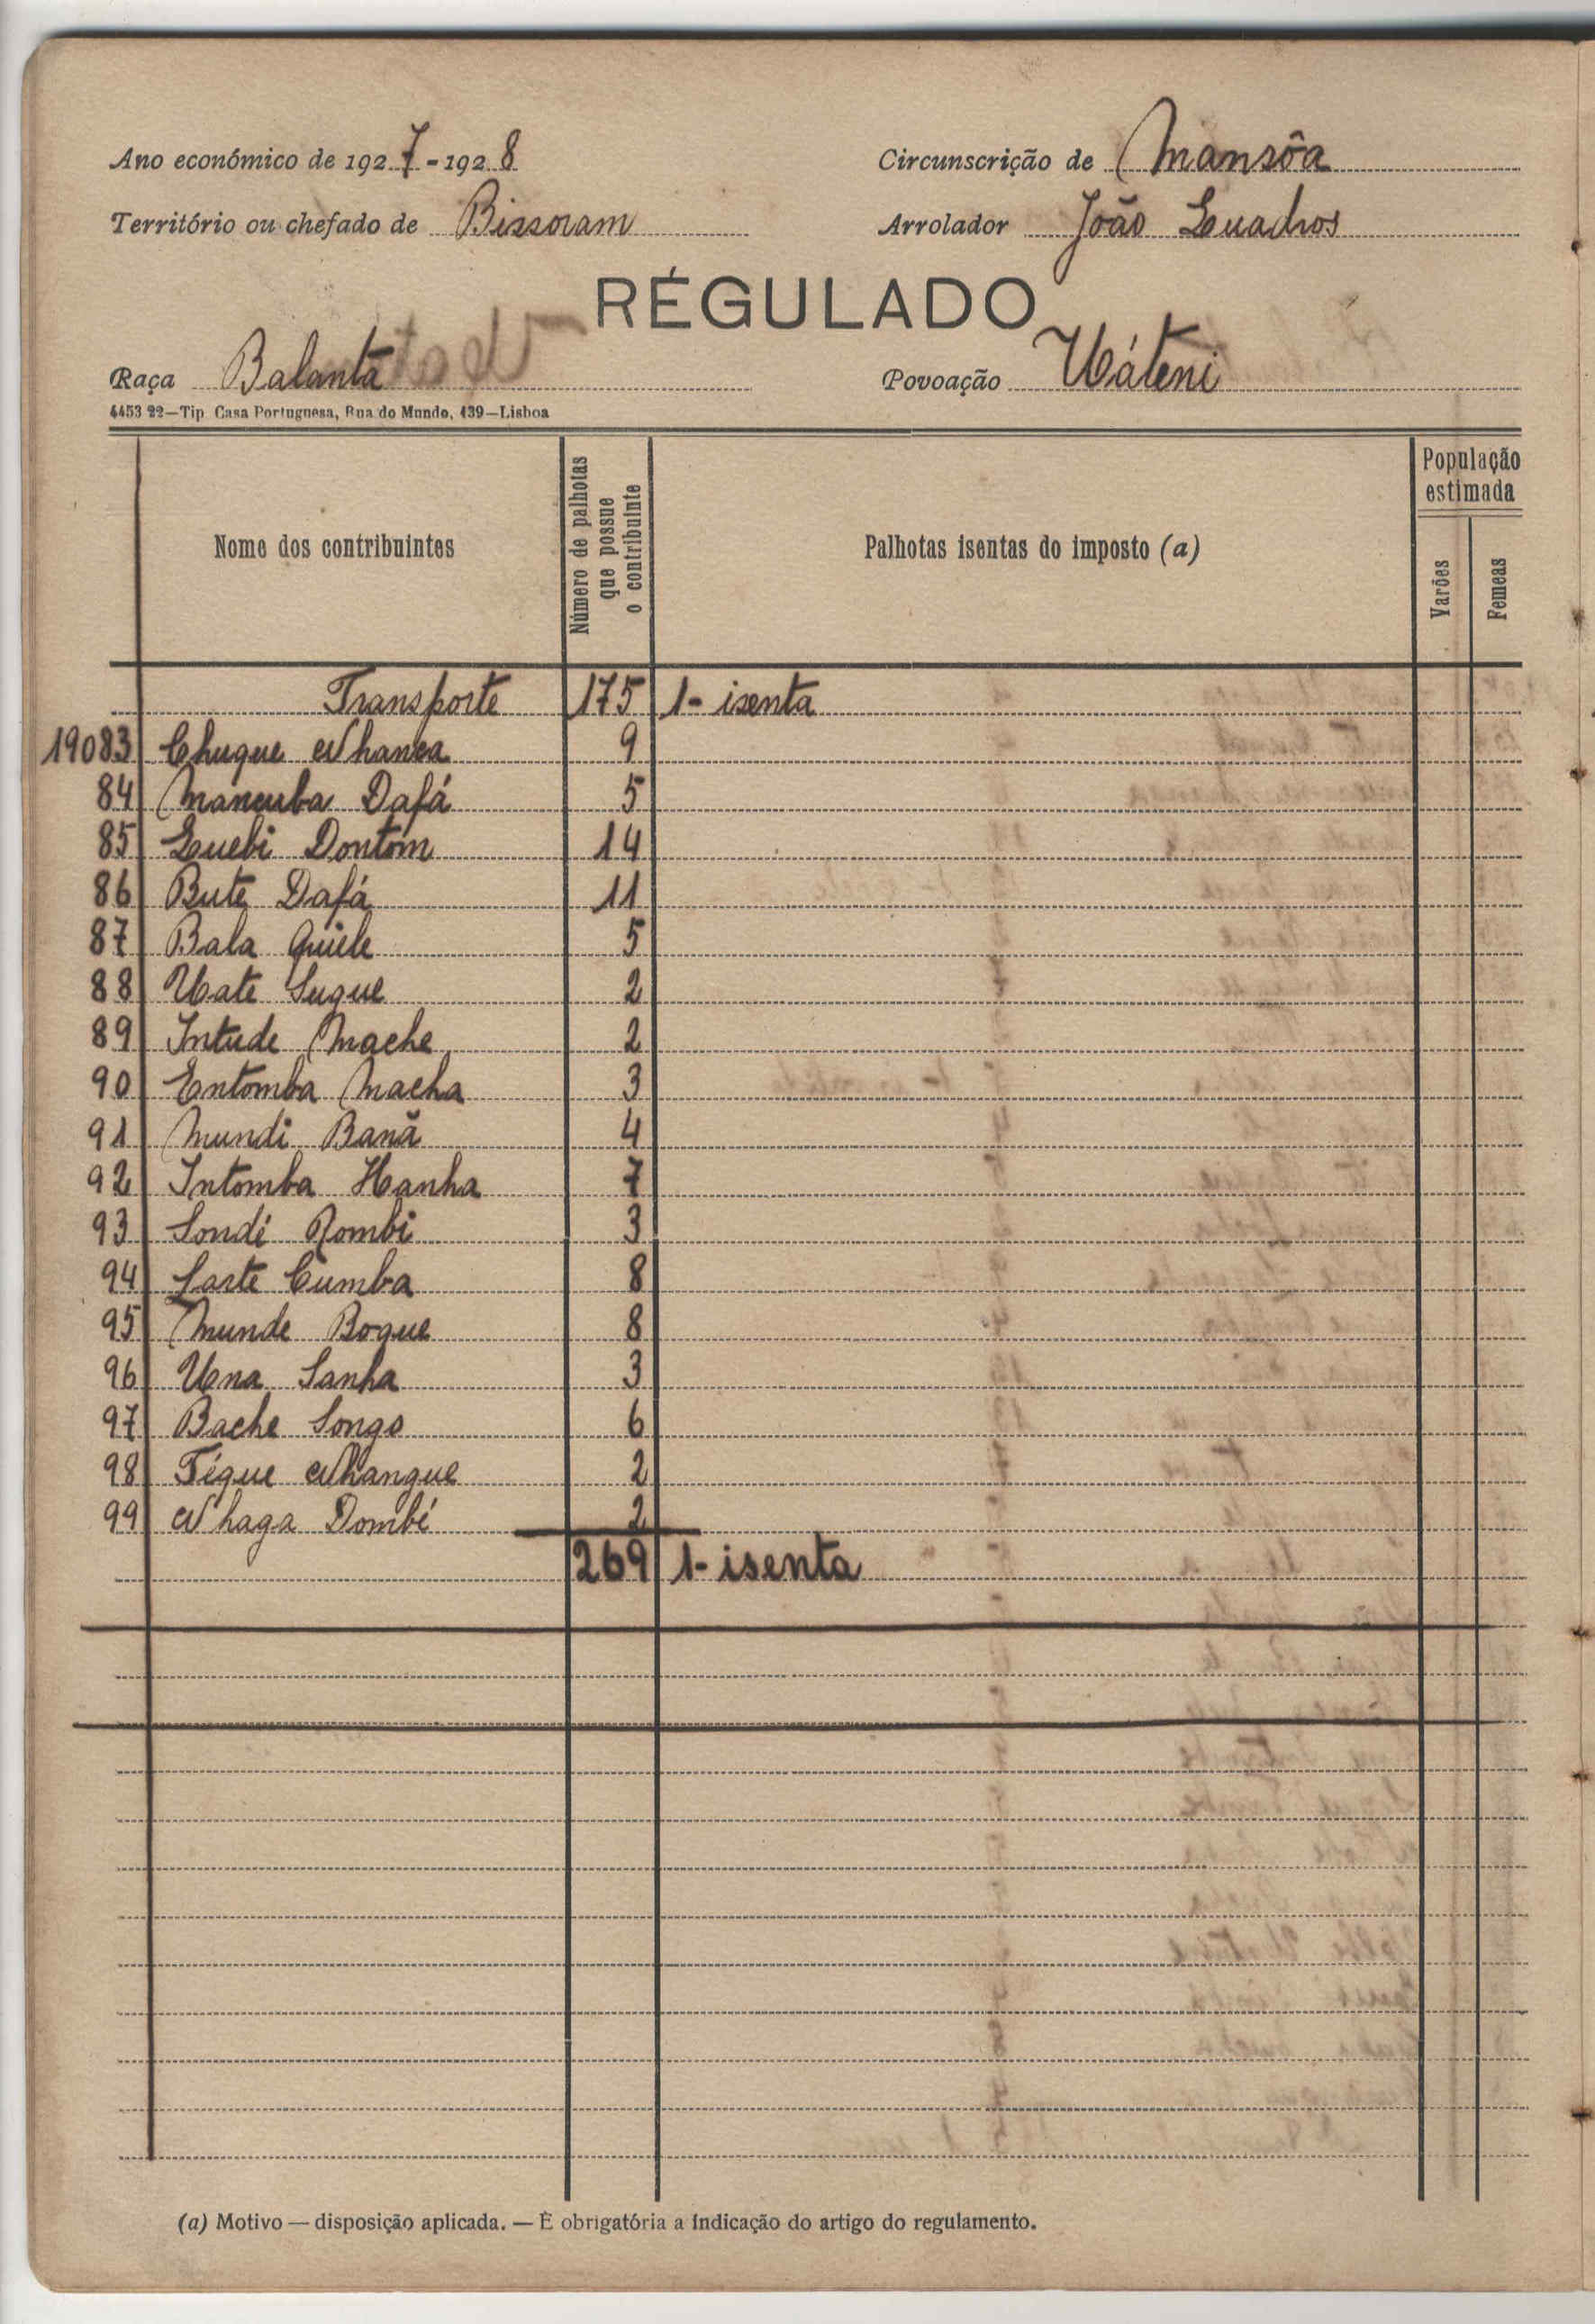 Ano económico de 1927-1928
Circunscrição de Mansôa
Território ou chefado de Bissoram
Arrolador João Quadros
RÉGULADO
Raça Balanta
Povoação Uáteni
4453 22—Tip Casa Portuguesa, Rua do Mundo, 139—Lisboa
Nome dos contribuintes
Número de palhotas que possue o contribuinte
Palhotas isentas do imposto (a)
População estimada
Varões
Femeas
Transporte 175 1- isenta
19083 Chuque Nhanca 9
84 Mancuba Dafá 5
85 Quebi Dontom 14
86 Bute Dafá 11
87 Bala Quiele 5
88 Uate Sugue 2
89 Intude Mache 2
90 Entomba Macha 3
91 Mundi Banã 4
92 Intomba Hanha 7
93 Sondé Rombi 3
94 Sarte Cumba 8
95 Munde Bogue 8
96 Una Sanha 3
97 Bache Songo 6
98 Tégue Nhangue 2
99 Nhaga Dombé 2
269 1- isenta
(a) Motivo — disposição aplicada. — É obrigatória a indicação do artigo do regulamento.